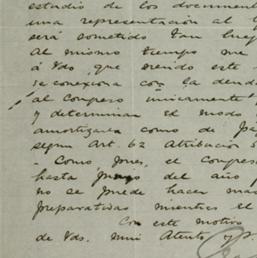 estudio de los document
una representación al
será sometido tan lueg
Al mismo tiempo me
á Vds. que siendo este
se conexiona con la deuda
al Congreso unicamente
y determinar el modo
amortizarla como de
segun Art. 62 Atribución 5
- Como pues, el Congres
hasta del año p
no se puede hacer mas
preparativas mientras el
Con este motivo
de Vds. mui Atento y